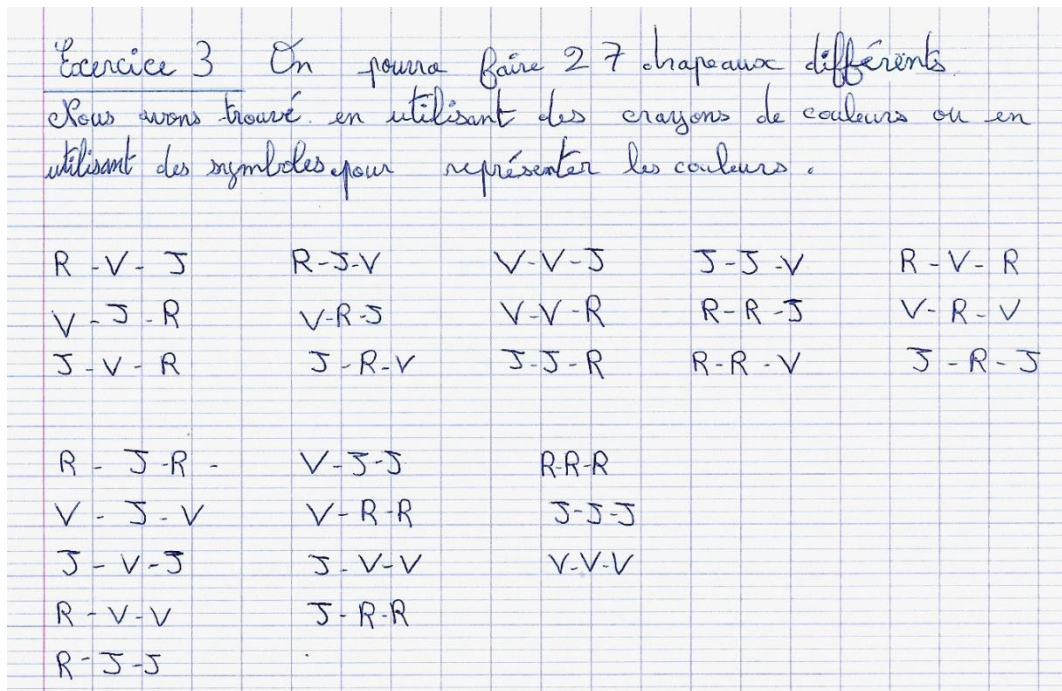 Exercice 3 On pourra faire 27 drapeaux différents
Nous avons trouvé en utilisant des crayons de couleurs ou en
utilisant des symboles pour représenter les couleurs.
R - V - J R-J-V V-V-J J-J-V R-V-R
V-J-R V-R-J V-V-R R-R-J V-R-V
J-V-R J-R-V J-J-R R-R-V J-R-J
R - J-R - V-J-J R-R-R
V-J-V V-R-R J-J-J
J-V-J J-V-V V-V-V
R-V-V J-R-R
R-J-J